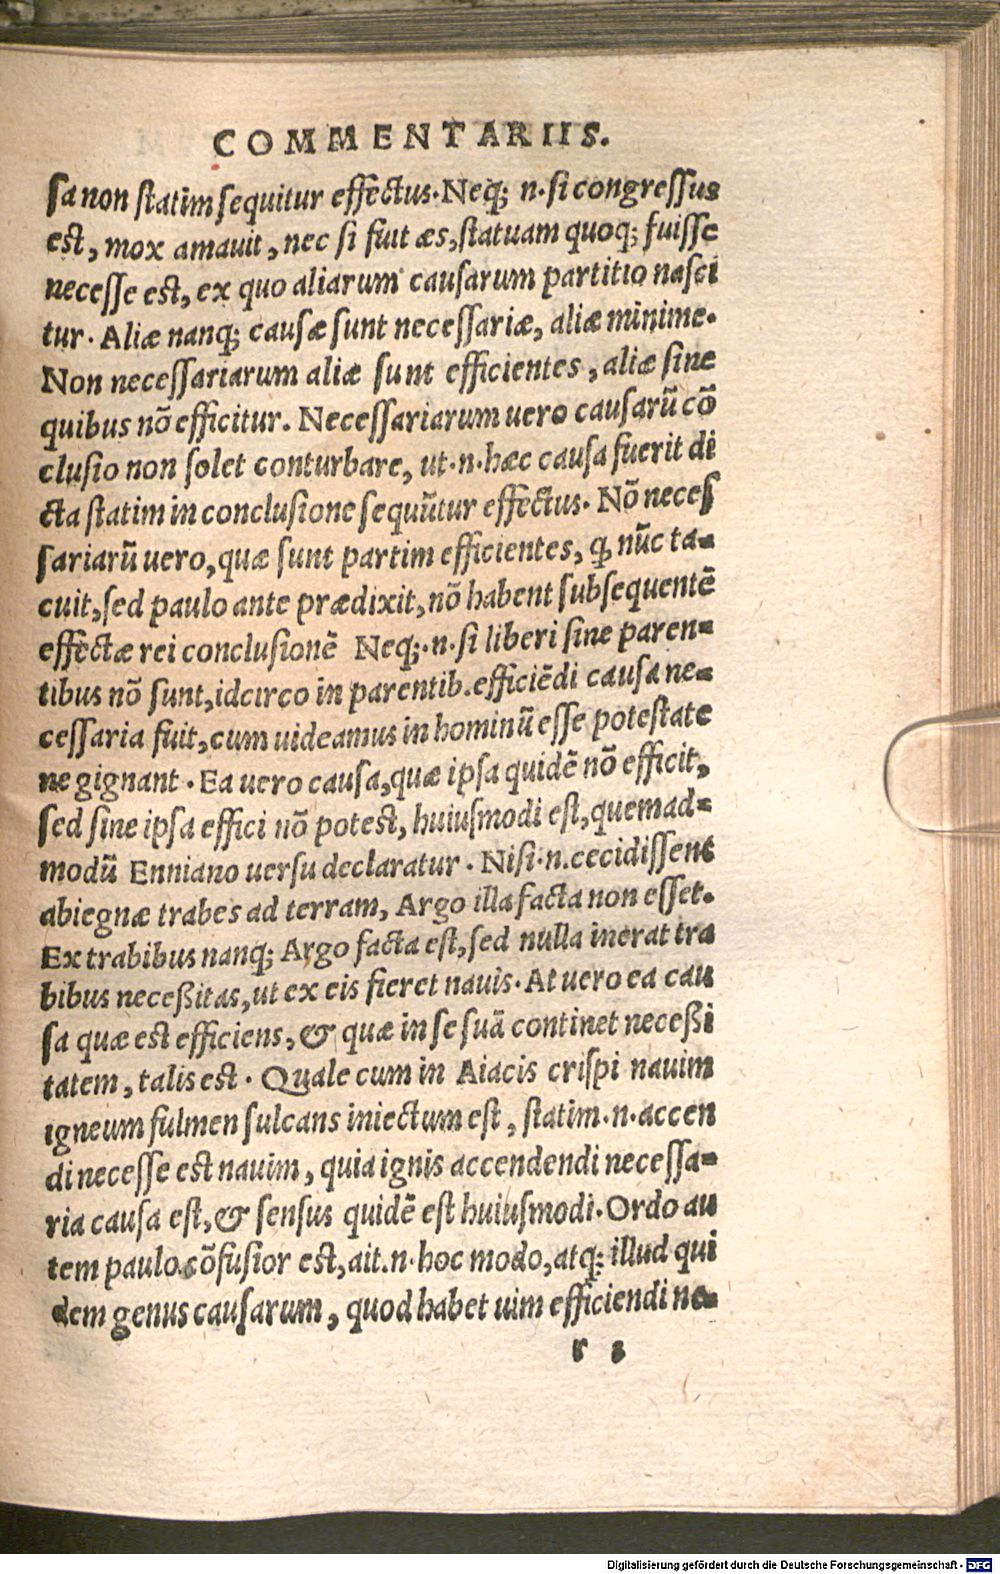 COMMENTARIIS.
sa non statim sequitur effectus. Neq; n. si congressus
est, mox amauit, nec si fuit æs, statuam quoq; fuisse
necesse est, ex quo aliarum causarum partitio nasci
tur. Aliæ nanq; causæ sunt necessariæ, aliæ minime.
Non necessariarum aliæ sunt efficientes, aliæ sine
quibus nõ efficitur. Necessariarum uero causarũ cõ
clusio non solet conturbare, ut. n. hæc causa fuerit di
cta statim in conclusione sequũtur effectus. Nõ neces
sariarũ uero, quæ sunt partim efficientes, q, nũc ta-
cuit, sed paulo ante prædixit, nõ habent subsequentẽ
effectæ rei conclusionẽ Neq;. n. si liberi sine paren-
tibus nõ sunt, idcirco in parentib. efficiẽdi causa ne-
cessaria fuit, cum uideamus in hominũ esse potestate
ne gignant. Ea uero causa, quæ ipsa quidẽ nõ efficit,
sed sine ipsa effici nõ potest, huiusmodi est, quemad-
modũ Enniano uersu declaratur. Nisi. n. cecidissent
abiegnæ trabes ad terram, Argo illa facta non esset.
Ex trabibus nanq; Argo facta est, sed nulla inerat tra
bibus neceßitas, ut ex eis fieret nauis. At uero ea cau
sa quæ est efficiens, & quæ in se suã continet neceßi
tatem, talis est. Quale cum in Aiacis crispi nauim
igneum fulmen sulcans iniectum est, statim. n. accen
di necesse est nauim, quia ignis accendendi necessa-
ria causa est, & sensus quidẽ est huiusmodi. Ordo au
tem paulo cõfusior est, ait. n. hoc modo, atq; illud qui
dem genus causarum, quod habet uim efficiendi ne-
r 2
Digitalisierung gefördert durch die Deutsche Forschungsgemeinschaft - DFG